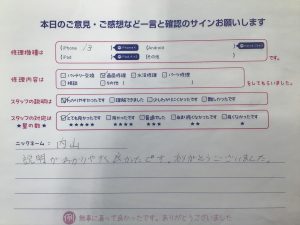 本日のご意見・ご感想など一言と確認のサインお願いします
修理機種は
iPhone 13
Android
iPad
その他
です。
修理内容は
バッテリー交換 液晶修理 水没修理 パーツ修理
相談 SNS
をしてもらいました。
スタッフの説明は
わかりやすかった 理解できました 少しわかりにくかった 難しかったです
スタッフの対応は
★星の数
とても良かった 良かった 普通でした
★★★★★ ★★★★ ★★★ ★★ ★
ニックネーム: 内山
説明がわかりやすく良かったです。ありがとうございました。
無事に直って良かったです。ありがとうございました